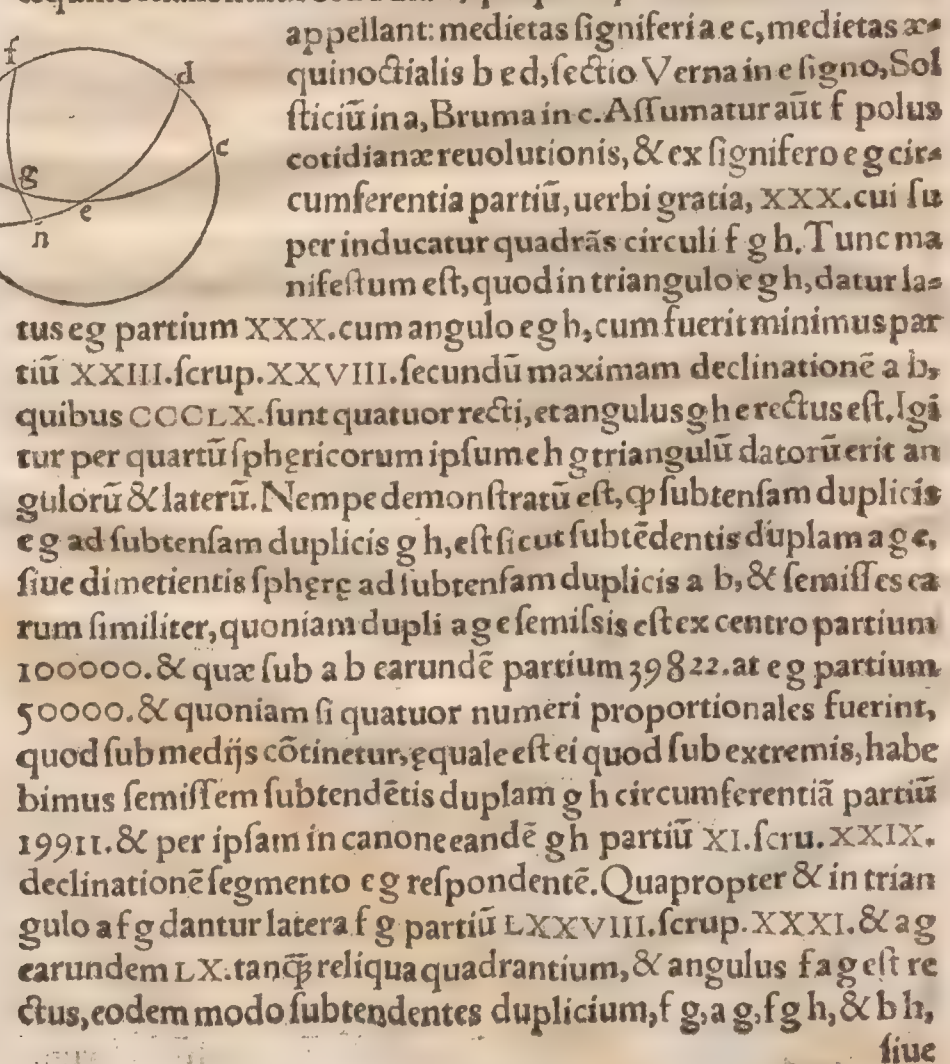 appellant: medietas ſigniferi a e c, medietas æ-
quinoctialis b e d, ſectio Verna in e ſigno, Sol
ſticiũ in a, Bruma in c. Aſſumatur aũt f polus
cotidianæ reuolutionis, & ex ſignifero e g cir-
cumferentia partiũ, uerbi gratia, XXX. cui ſu
per inducatur quadrãs circuli f g h. Tunc ma
nifeſtum eſt, quod in triangulo e g h, datur la-
tus e g partium XXX. cum angulo e g h, cum fuerit minimus par
tiũ XXIII. ſcrup. XXVIII. ſecundũ maximam declinationẽ a b,
quibus CCCLX. ſunt quatuor recti, et angulus g h e rectus eſt. Igi
tur per quartũ ſphęricorum ipſum e h g triangulũ datorũ erit an
gulorũ & laterũ. Nempe demonſtratũ eſt, ꝙ ſubtenſam duplicis
e g ad ſubtenſam duplicis g h, eſt ſicut ſubtẽdentis duplam a g e,
ſiue dimetientis ſphęrę ad ſubtenſam duplicis a b, & ſemiſſes ea
rum ſimiliter, quoniam dupli a g e ſemiſsis eſt ex centro partium
100000. & quæ ſub a b earundẽ partium 39822. at e g partium
50000. & quoniam ſi quatuor numeri proportionales fuerint,
quod ſub medijs cõtinetur, ęquale eſt ei quod ſub extremis, habe
bimus ſemiſſem ſubtendẽtis duplam g h circumferentiã partiũ
19911. & per ipſam in canone eandẽ g h partiũ XI. ſcru. XXIX.
declinationẽ ſegmento e g reſpondentẽ. Quapropter & in trian
gulo a f g dantur latera f g partiũ LXXVIII. ſcrup. XXXI. & a g
earundem LX. tanꝗ̃ reliqua quadrantium, & angulus f a g eſt re
ctus, eodem modo ſubtendentes duplicium, f g, a g, f g h, & b h,
ſiue
f
d
c
g
e
n̄